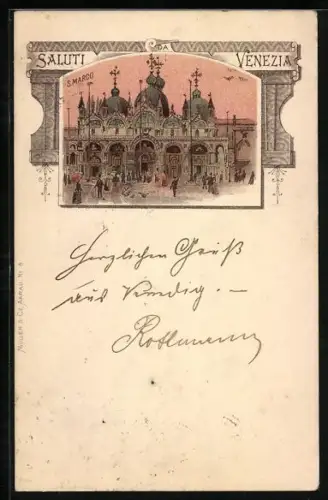 SALUTI DA VENEZIA
S. MARCO
Herzlichen Gruß
aus Venedig. —
Rothmann
MÜLLER & CO. AARAU. Nº 4